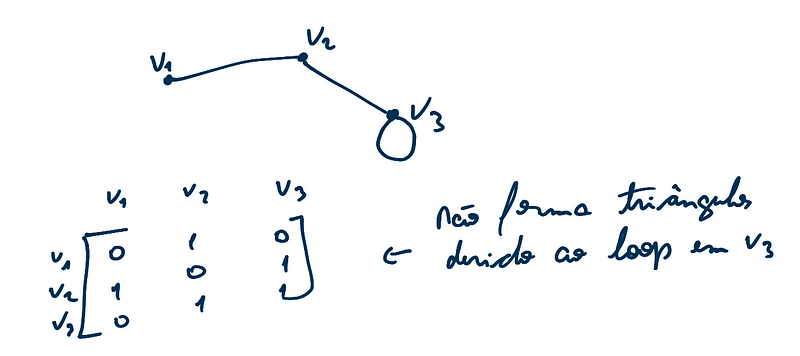 v1 v2
v3
v1 v2 v3
v1 0 1 0
v2 1 0 1
v3 0 1 1
não forma triângulos
← devido ao loop em v3